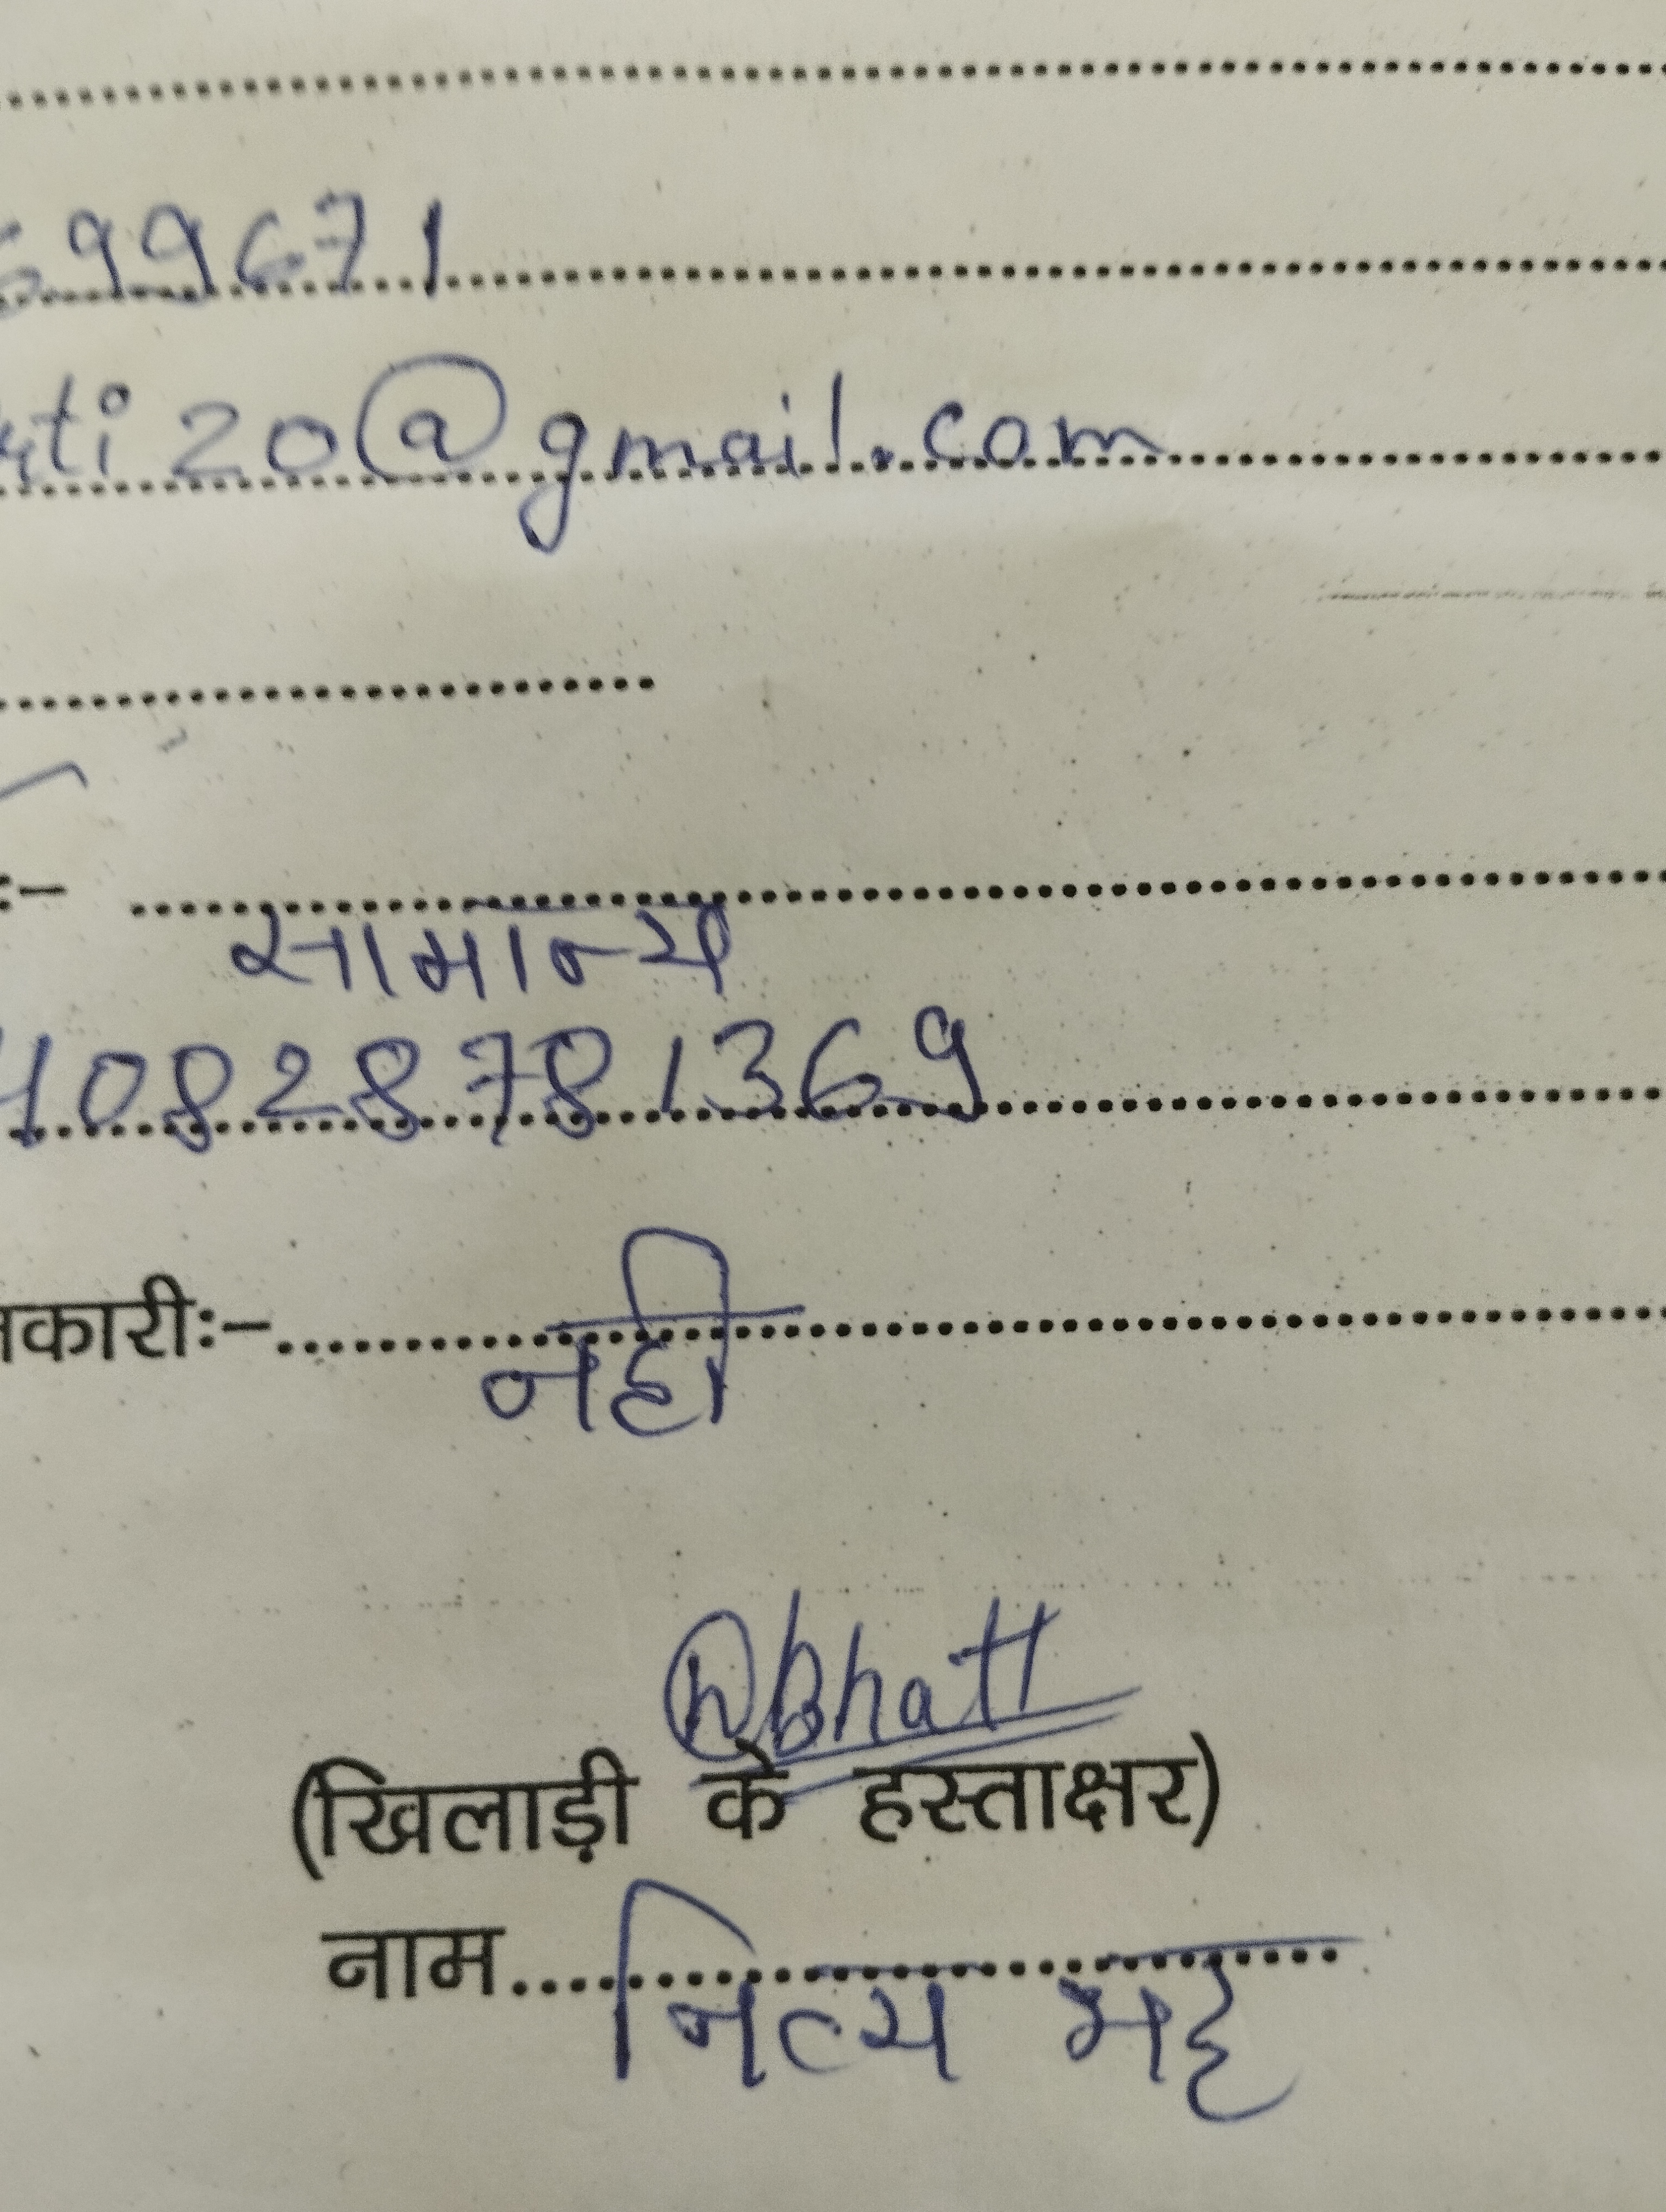 699671
ti20@gmail.com
:-
सामान्य
40828781369
नकारीः-
नही
Bhatt
(खिलाड़ी के हस्ताक्षर)
नाम नित्य भट्ट